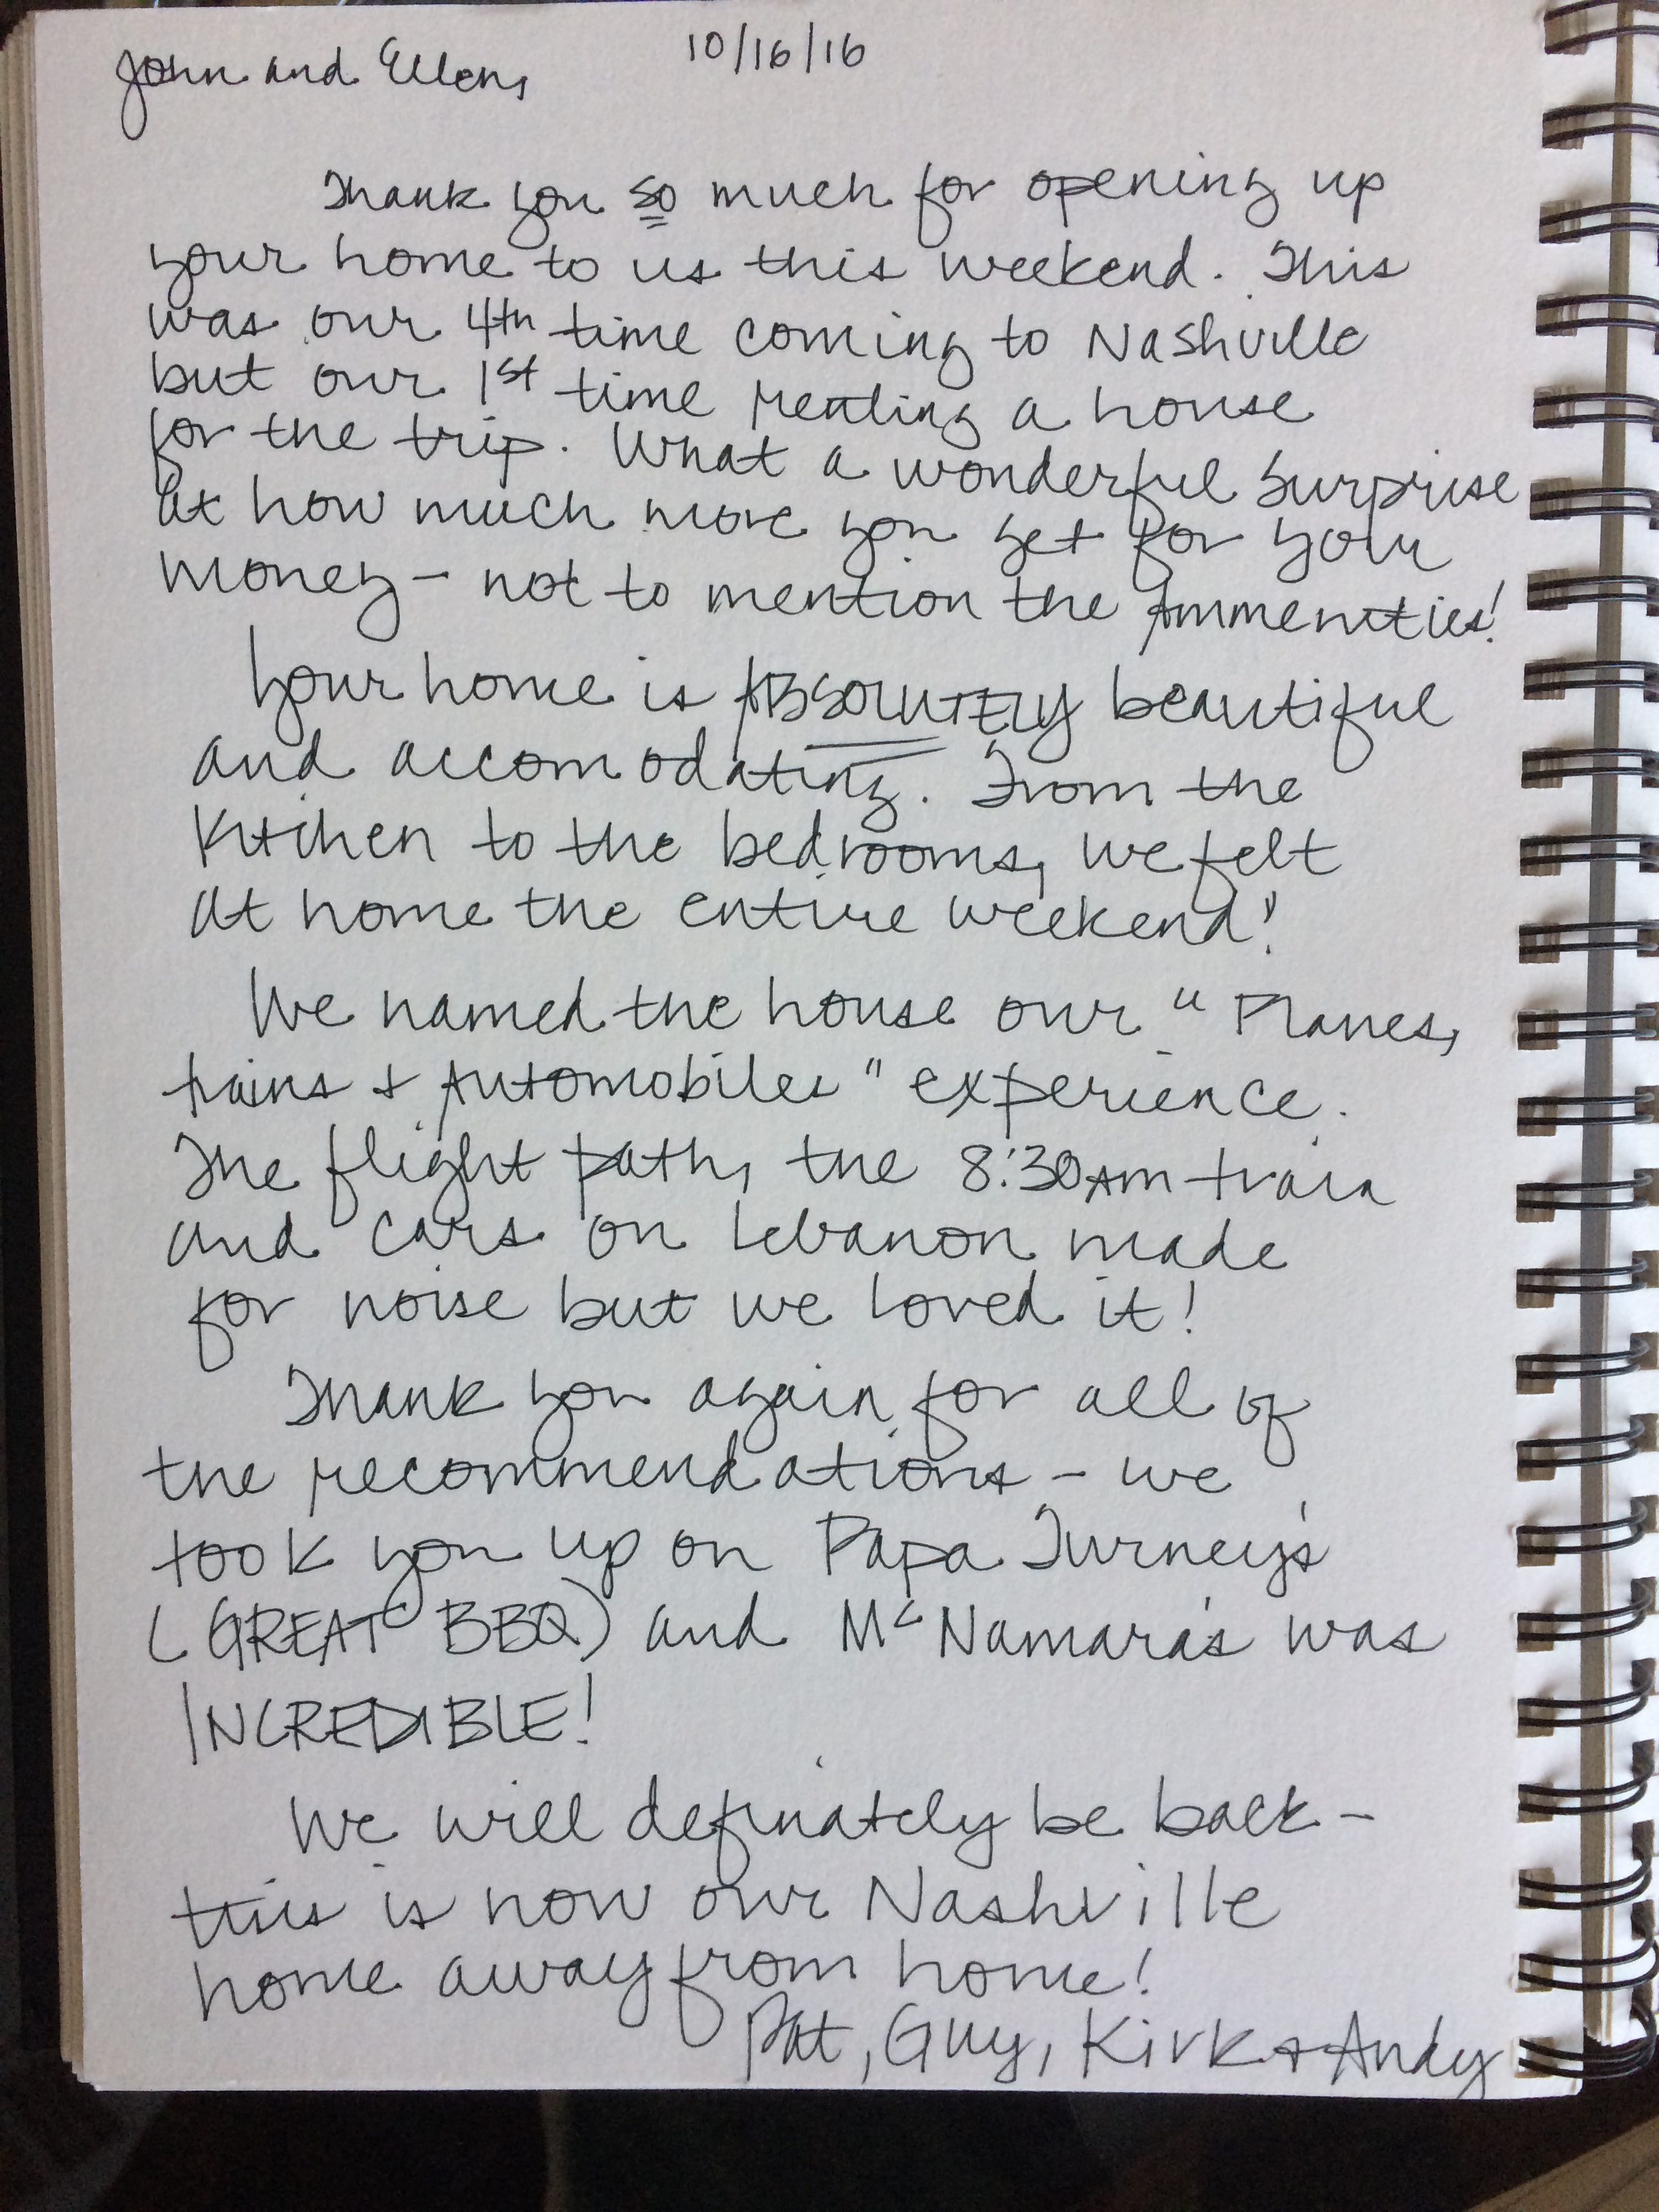 10/16/16
John and Ellen,
Thank you so much for opening up
your home to us this weekend. This
was our 4th time coming to Nashville
but our 1st time renting a house
for the trip. What a wonderful surprise
at how much more you get for your
money - not to mention the Ammenities!
Your home is ABSOLUTELY beautiful
and accomodating. From the
kitchen to the bedrooms, we felt
at home the entire weekend!
We named the house our "Planes,
trains + Automobiles" experience.
The flight path, the 8:30AM train
and cars on Lebanon made
for noise but we loved it!
Thank you again for all of
the recommendations - we
took you up on Papa Turney's
(GREAT BBQ) and McNamara's was
INCREDIBLE!
We will definately be back -
this is now our Nashville
home away from home!
Pat, Guy, Kirk + Andy